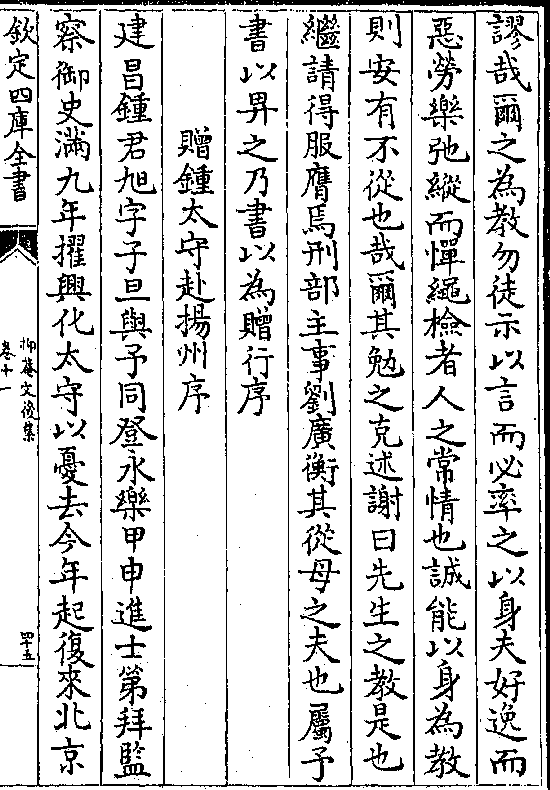 謬哉爾之為教勿徒示以言而必率之以身夫好逸而
惡勞樂弛縱而憚繩檢者人之常情也誠能以身為教
則安有不從也哉爾其勉之克述謝曰先生之教是也
繼請得服膺焉刑部主事劉廣衡其從母之夫也屬予
書以畀之乃書以為贈行序
贈鍾太守赴揚州序
建昌鍾君旭字子旦與予同登永樂甲申進士第拜監
察御史滿九年擢興化太守以憂去今年起復來北京
欽定四庫全書
抑菴文後集
卷十一
四十五